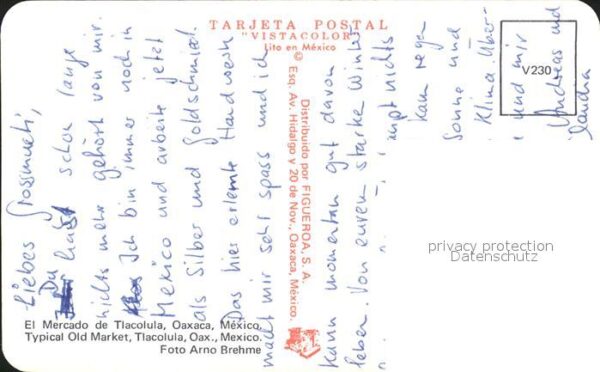 TARJETA POSTAL
"VISTACOLOR"
Lito en México
©
V230
Distribuido por FIGUEROA, S. A.
Esq. Av. Hidalgo y 20 de Nov., Oaxaca, México.
El Mercado de Tlacolula, Oaxaca, México.
Typical Old Market, Tlacolula, Oax., Mexico.
Foto Arno Brehme
privacy protection
Datenschutz
Liebes Grosmueti,
Du hast schon lange
nichts mehr gehört von mir.
Ich bin immer noch in
Mexico und arbeite jetzt
als Silber und Goldschmied.
Das hier erlernte Handwerk
macht mir sehr spass und ich
kann momentan gut davon
leben. Von eurem starke Winter
nichts
kann
Sonne und
Klima
und mir
Andreas und
Claudia